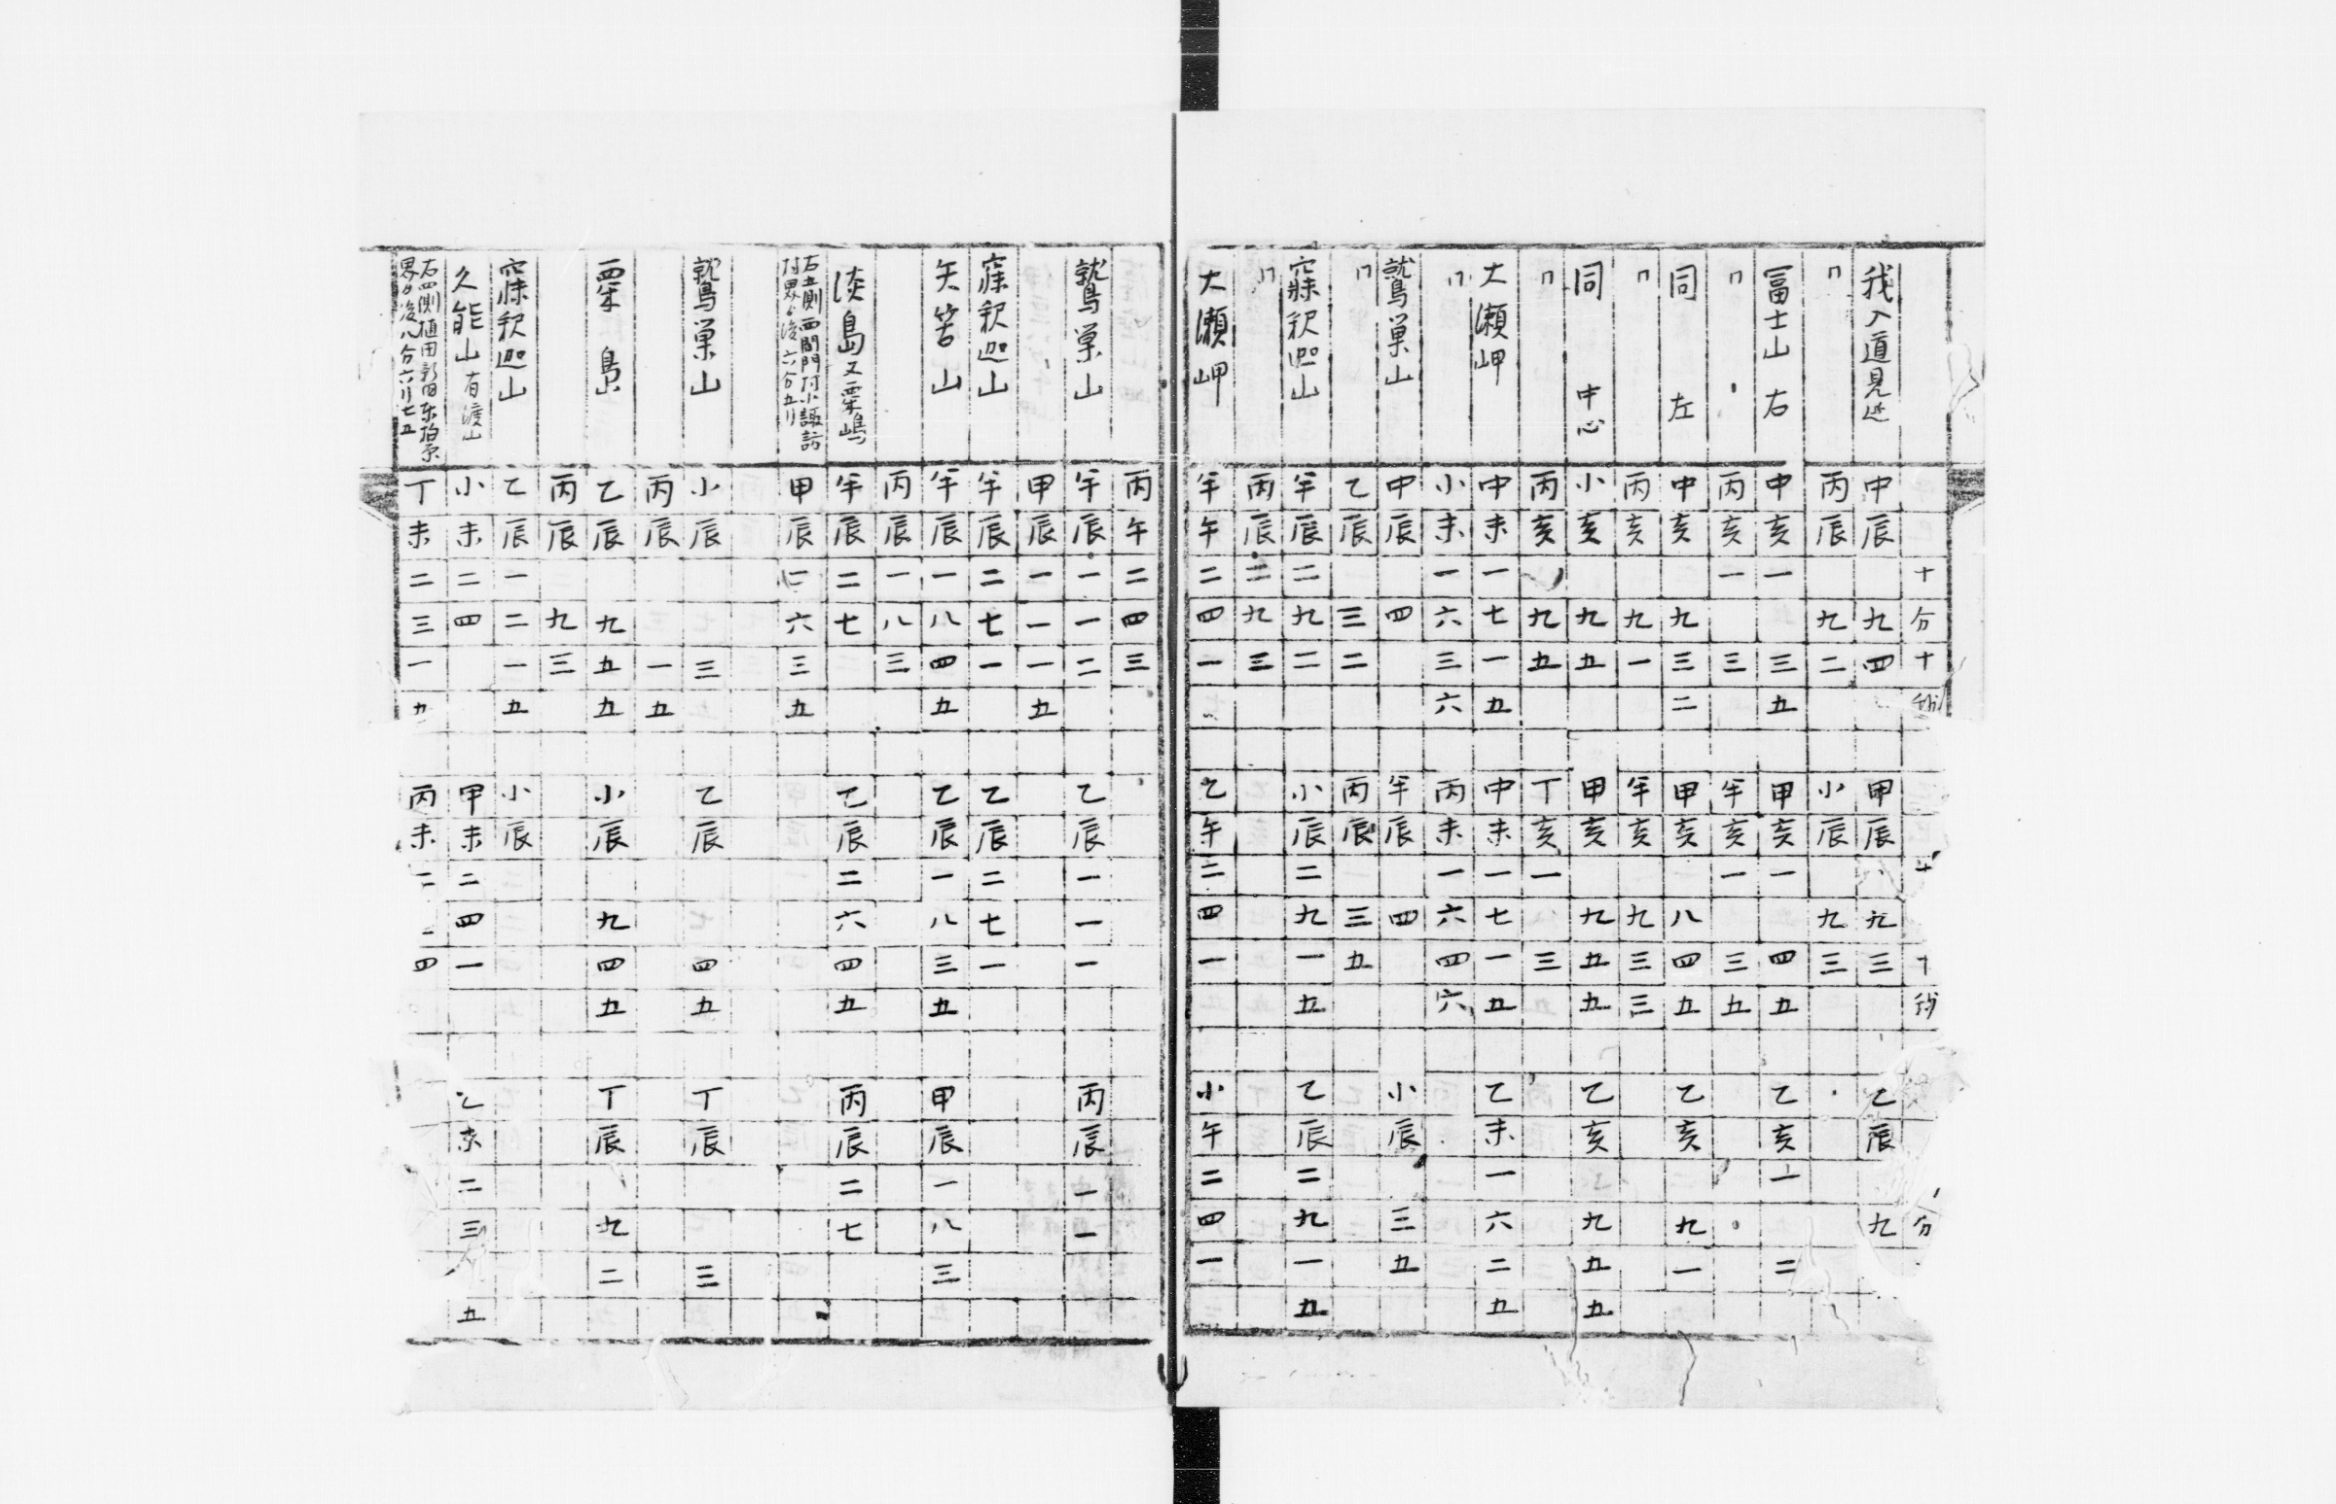 十分十秒 十十秒 分
我入道見込 中辰九四 甲辰九三 乙辰九
〃 丙辰九二 小辰九三
冨士山 右 中亥一三五 甲亥一四五 乙亥一二
〃 丙亥一三 牟亥一三五
同 左 中亥九三二 甲亥八四五 乙亥九一
〃 丙亥九一 牟亥九三三
同 中心 小亥九五 甲亥九五五 乙亥九五五
〃 丙亥九五 丁亥一三
大瀬岬 中未一七一五 中未一七一五 乙未一六二五
〃 小未一六三六 丙未一六四六
鷲巣山 中辰四 牟辰四 小辰三五
〃 乙辰三二 丙辰三五
寐釈迦山 牟辰二九二 小辰二九一五 乙辰二九一五
〃 丙辰二九三
大瀬岬 牟午二四一 乙午二四一 小午二四一
丙午二四三
鷲巣山 牟辰一一二 乙辰一一一 丙辰一一
甲辰一一一五
寐釈迦山 牟辰二七一 乙辰二七一
矢筈山 牟辰一八四五 乙辰一八三五 甲辰一八三
丙辰一八三
淡島又粟嶋 牟辰二七 乙辰二六四五 丙辰二七
右五側西間門村小諏訪
村界ゟ後六分五リ
甲辰六三五
鷲巣山 小辰三 乙辰四五 丁辰三
丙辰一五
粟島 乙辰九五五 小辰九四五 丁辰九二
丙辰九三
寐釈迦山 乙辰一二一五 小辰
久能山 有渡山 小未二四 甲未二四一 乙未二三五
右四側植田新田東柏原
界ゟ後八分六リ七五
丁未二三一九 丙未二二四